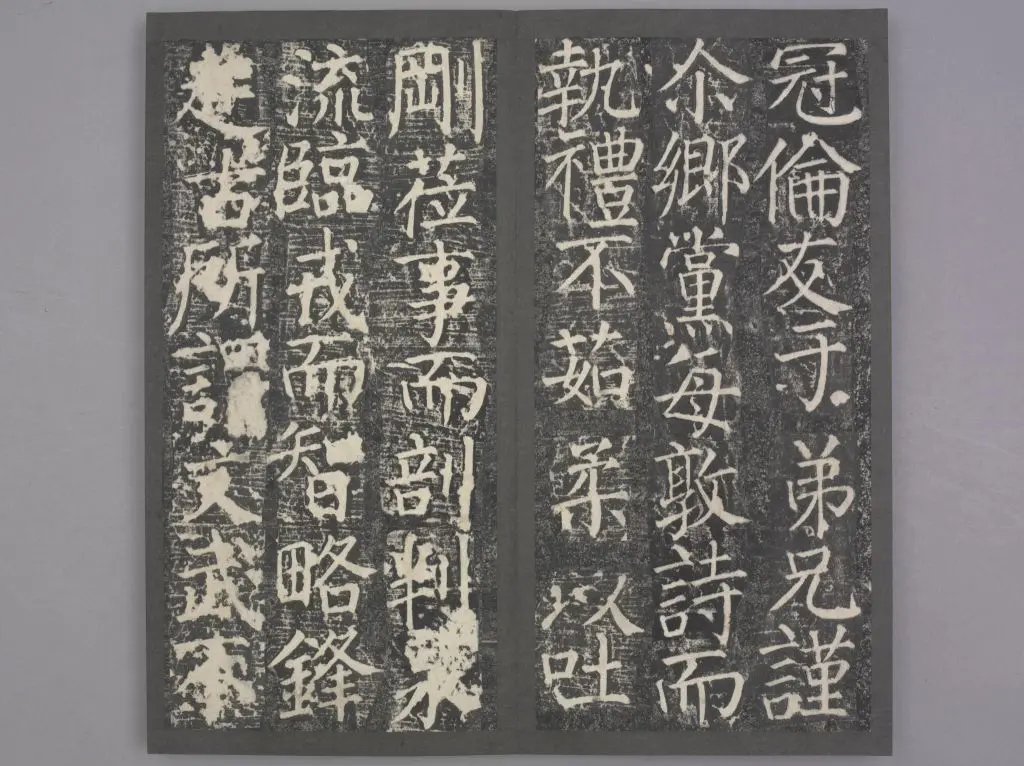 冠倫友于弟兄謹
尒鄉黨每敦詩而
執禮不茹柔以吐
剛莅事而剖判泉
流臨戎而智略鋒
起古所謂文武